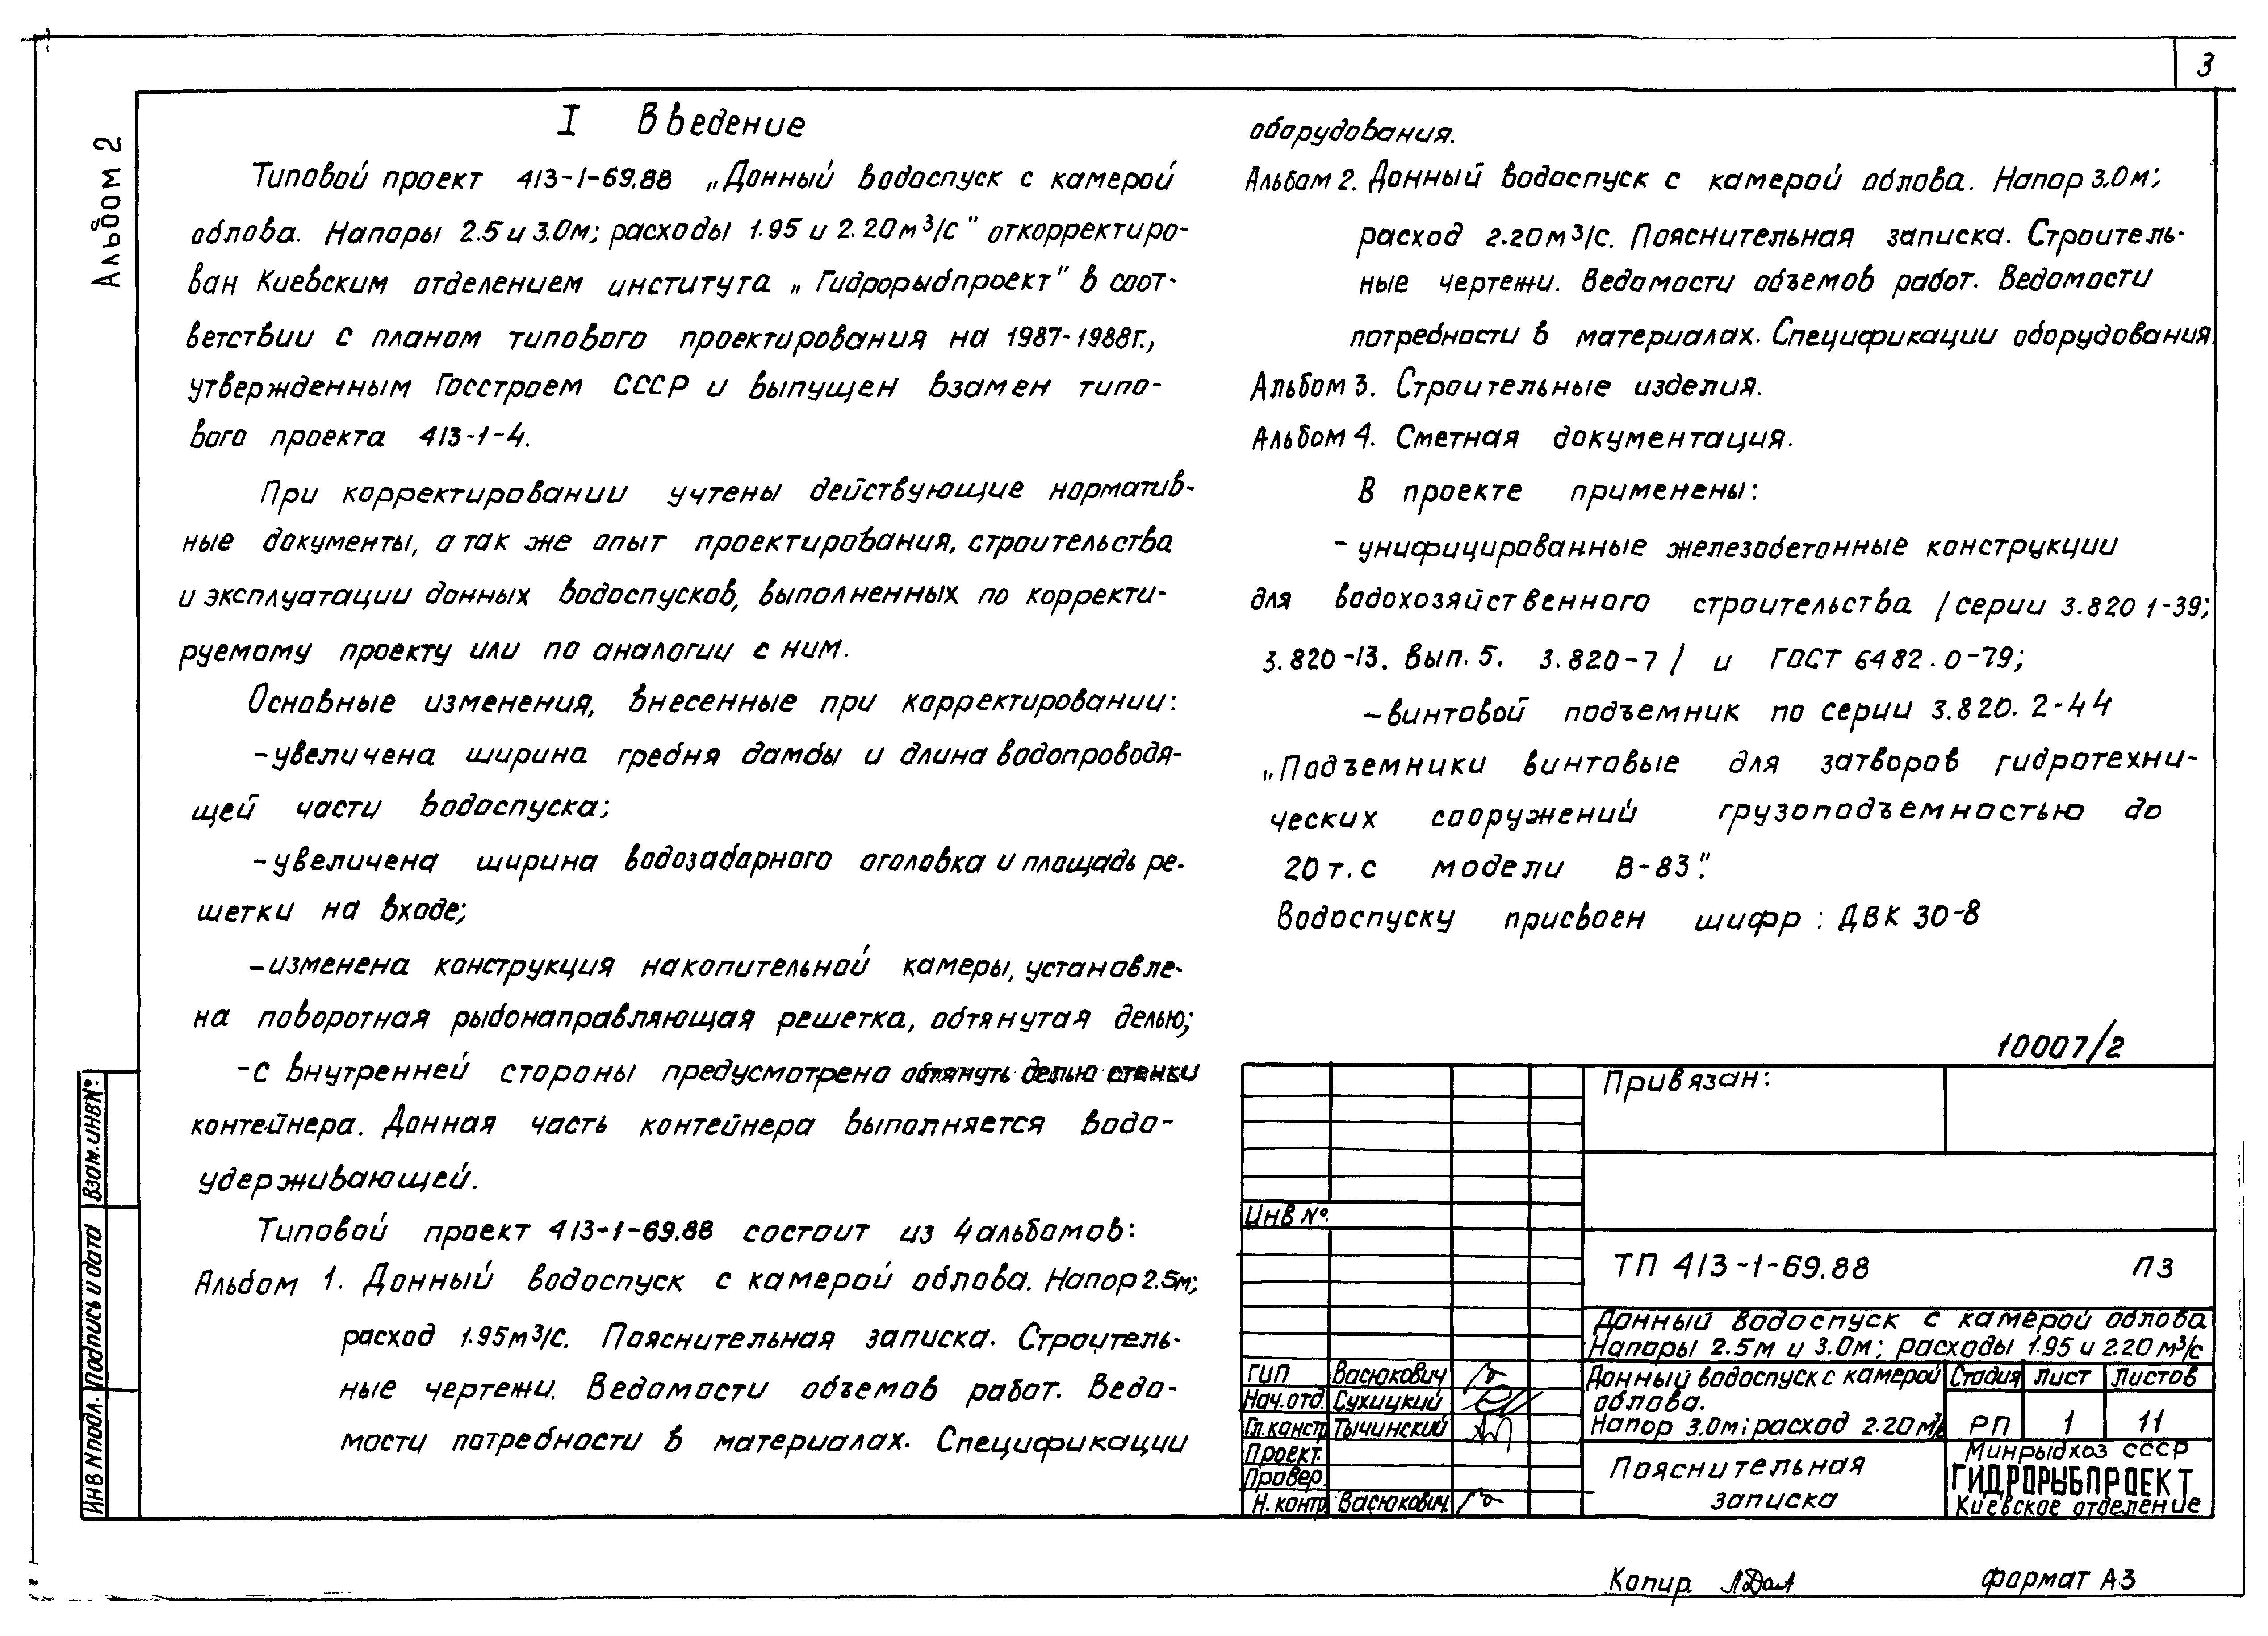 3
Альбом 2
I Введение
Типовой проект 413-1-69.88 „Донный водоспуск с камерой
облова. Напоры 2.5 и 3.0м; расходы 1.95 и 2.20 м³/с" откорректиро-
ван Киевским отделением института „Гидрорыбпроект" в соот-
ветствии с планом типового проектирования на 1987-1988г.,
утвержденным Госстроем СССР и выпущен взамен типо-
вого проекта 413-1-4.
При корректировании учтены действующие норматив-
ные документы, а так же опыт проектирования, строительства
и эксплуатации донных водоспусков, выполненных по корректи-
руемому проекту или по аналогии с ним.
Основные изменения, внесенные при корректировании:
-увеличена ширина гребня дамбы и длина водопроводя-
щей части водоспуска;
-увеличена ширина водозаборного оголовка и площадь ре-
шетки на входе;
-изменена конструкция накопительной камеры, установле-
на поворотная рыбонаправляющая решетка, обтянутая делью;
-с внутренней стороны предусмотрено обтянуть делью стенки
контейнера. Донная часть контейнера выполняется водо-
удерживающей.
Типовой проект 413-1-69.88 состоит из 4 альбомов:
Альбом 1. Донный водоспуск с камерой облова. Напор 2.5м;
расход 1.95м³/с. Пояснительная записка. Строитель-
ные чертежи. Ведомости объемов работ. Ведо-
мости потребности в материалах. Спецификации
оборудования.
Альбом 2. Донный водоспуск с камерой облова. Напор 3.0м;
расход 2.20м³/с. Пояснительная записка. Строитель-
ные чертежи. Ведомости объемов работ. Ведомости
потребности в материалах. Спецификации оборудования
Альбом 3. Строительные изделия.
Альбом 4. Сметная документация.
В проекте применены:
- унифицированные железобетонные конструкции
для водохозяйственного строительства /серии 3.820 1-39;
3.820-13. вып. 5. 3.820-7/ и ГОСТ 6482.0-79;
-винтовой подъемник по серии 3.820. 2-44
„Подъемники винтовые для затворов гидротехни-
ческих сооружений грузоподъемностью до
20 т.с модели В-83".
Водоспуску присвоен шифр: ДВК 30-8
10007/2
Привязан:
Инв №.
ТП 413-1-69.88 ПЗ
Донный водоспуск с камерой облова
Напоры 2.5м и 3.0м; расходы 1.95 и 2.20 м³/с
ГИП Васюкович
Нач.отд. Сухицкий
Гл.констр Тычинский
Проект.
Провер.
Н. контр. Васюкович.
Донный водоспуск с камерой
облова.
Напор 3.0м; расход 2.20 м³/с
Стадия Лист Листов
РП 1 11
Пояснительная
записка
Минрыбхоз СССР
ГИДРОРЫБПРОЕКТ
Киевское отделение
Взам. инв №.
Подпись и дата
Инв N подл.
Копир.
формат А3